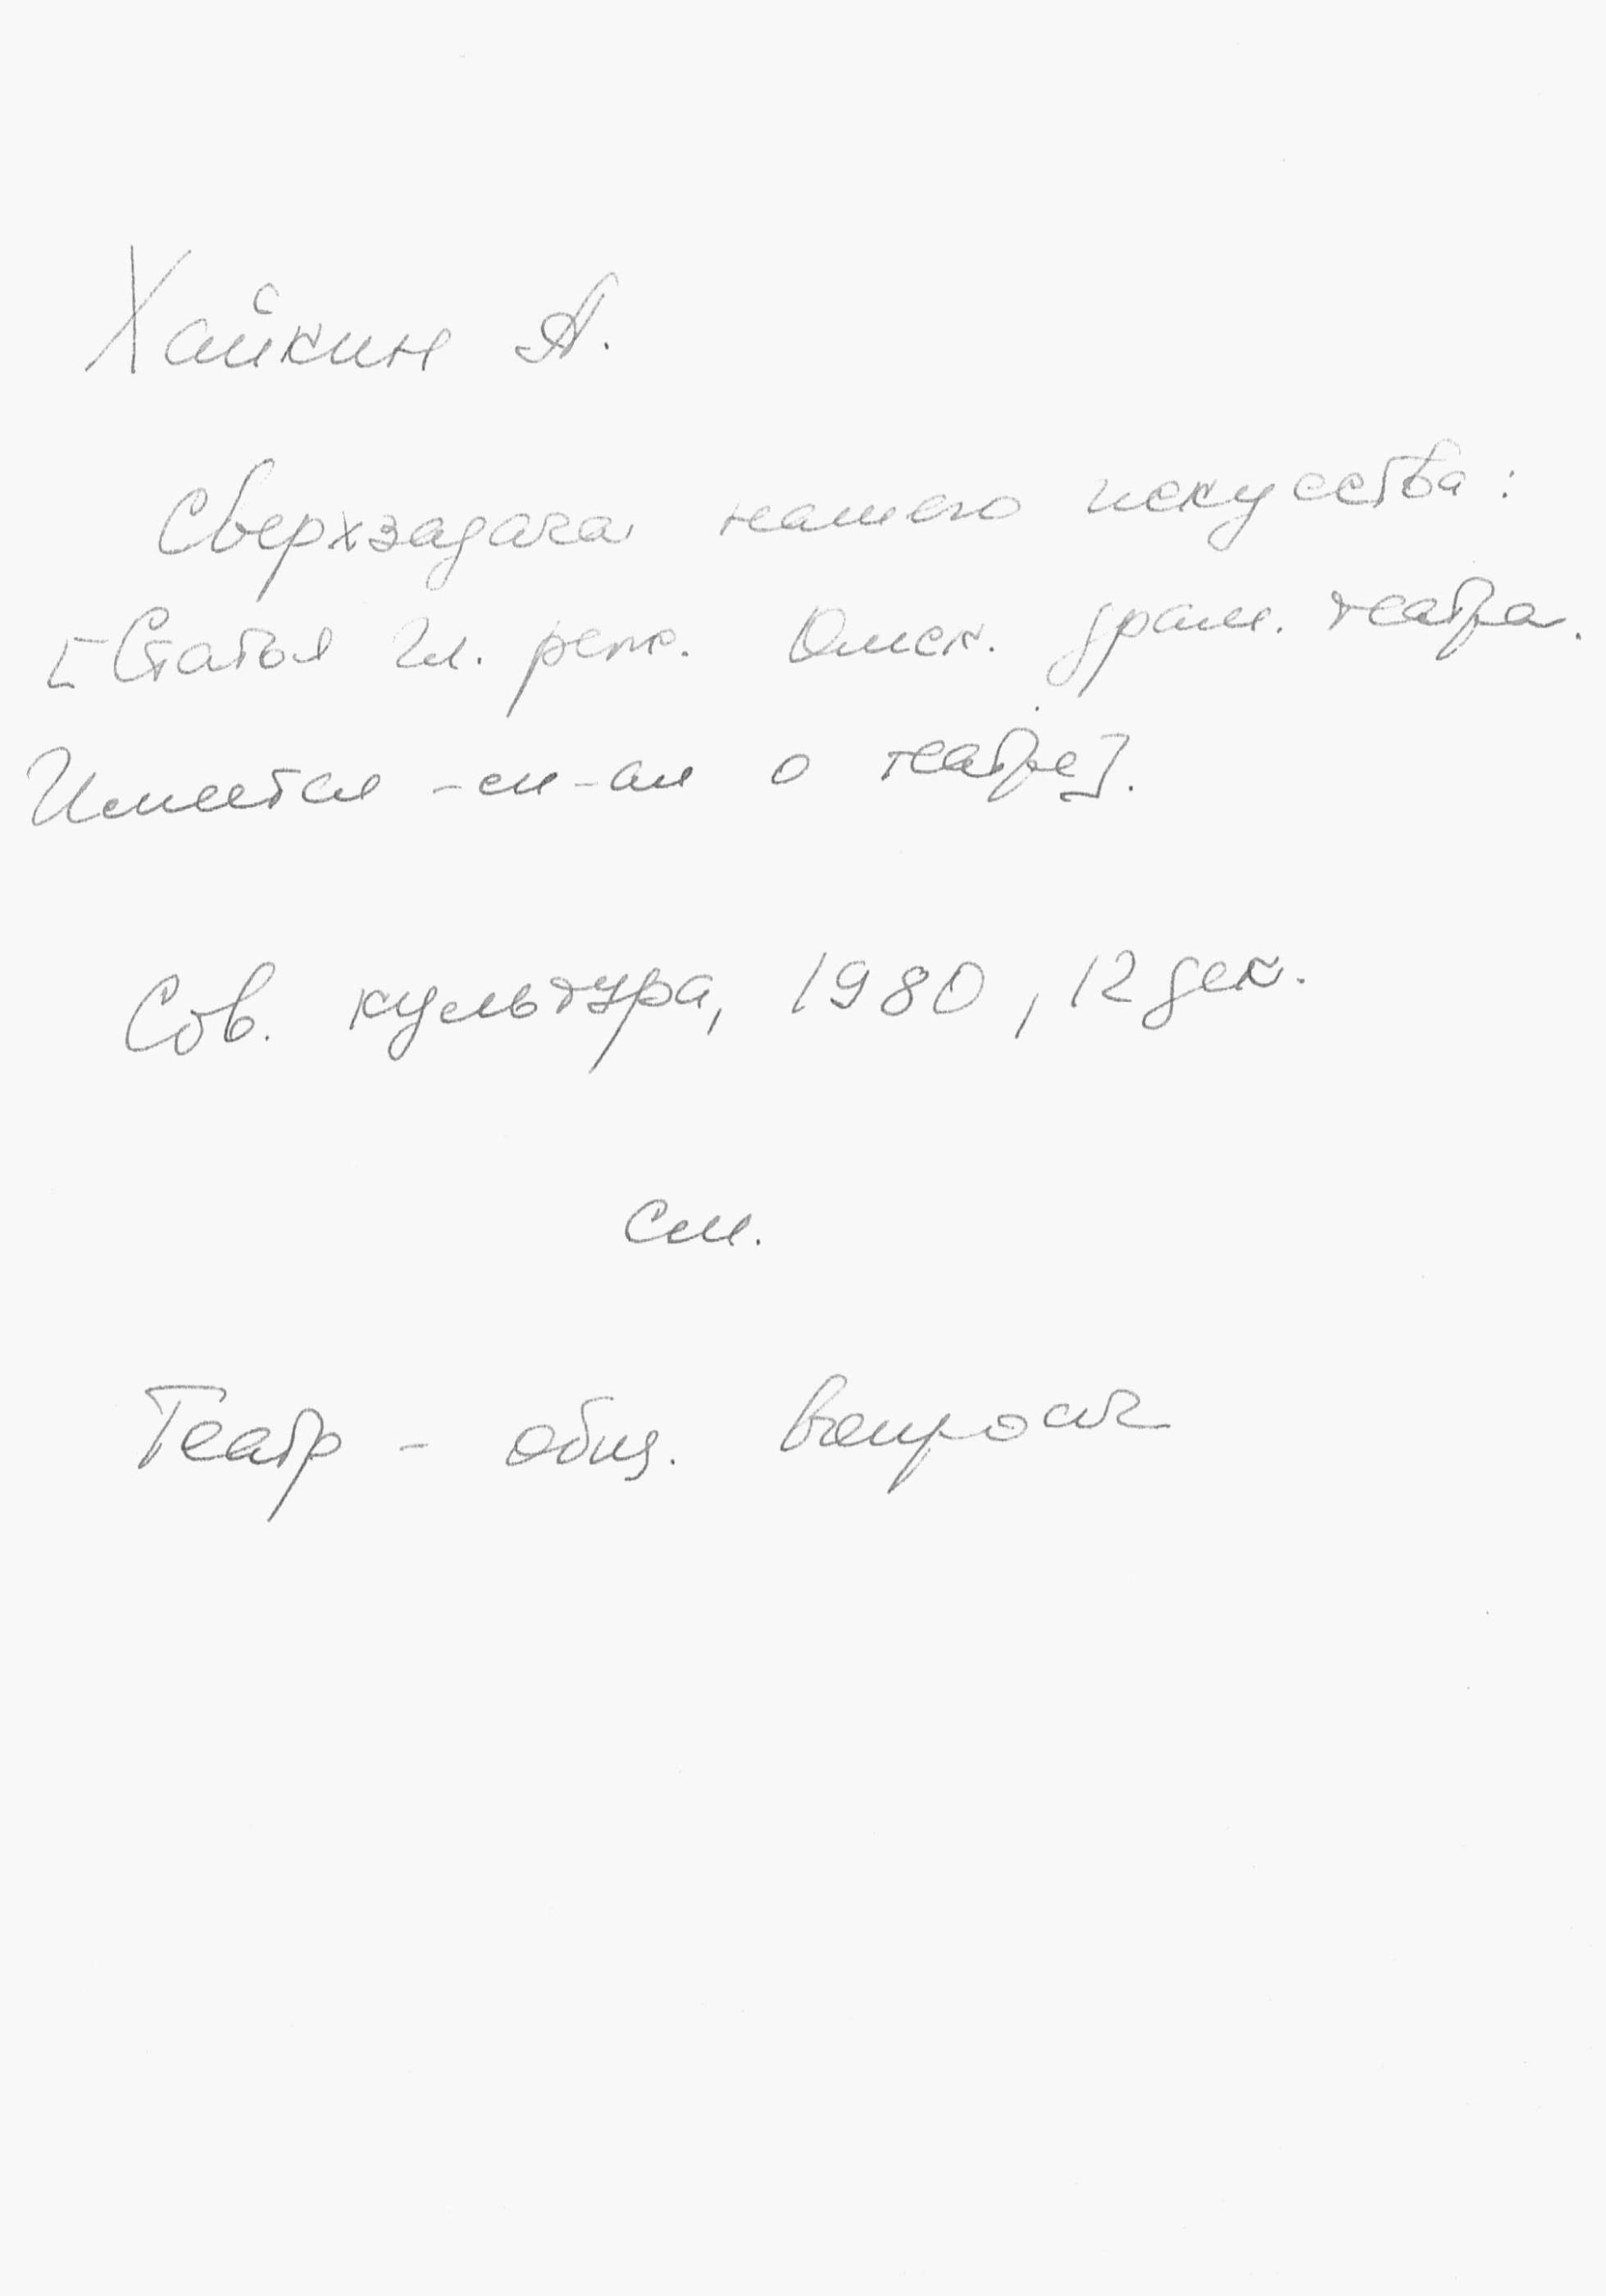 Хайкин А.
Сверхзадача нашего искусства:
[Статья гл. реж. Омск. драм. театра.
Имеется м-ал о театре].
Сов. культура, 1980, 12 дек.
см.
Театр - общ. вопросы